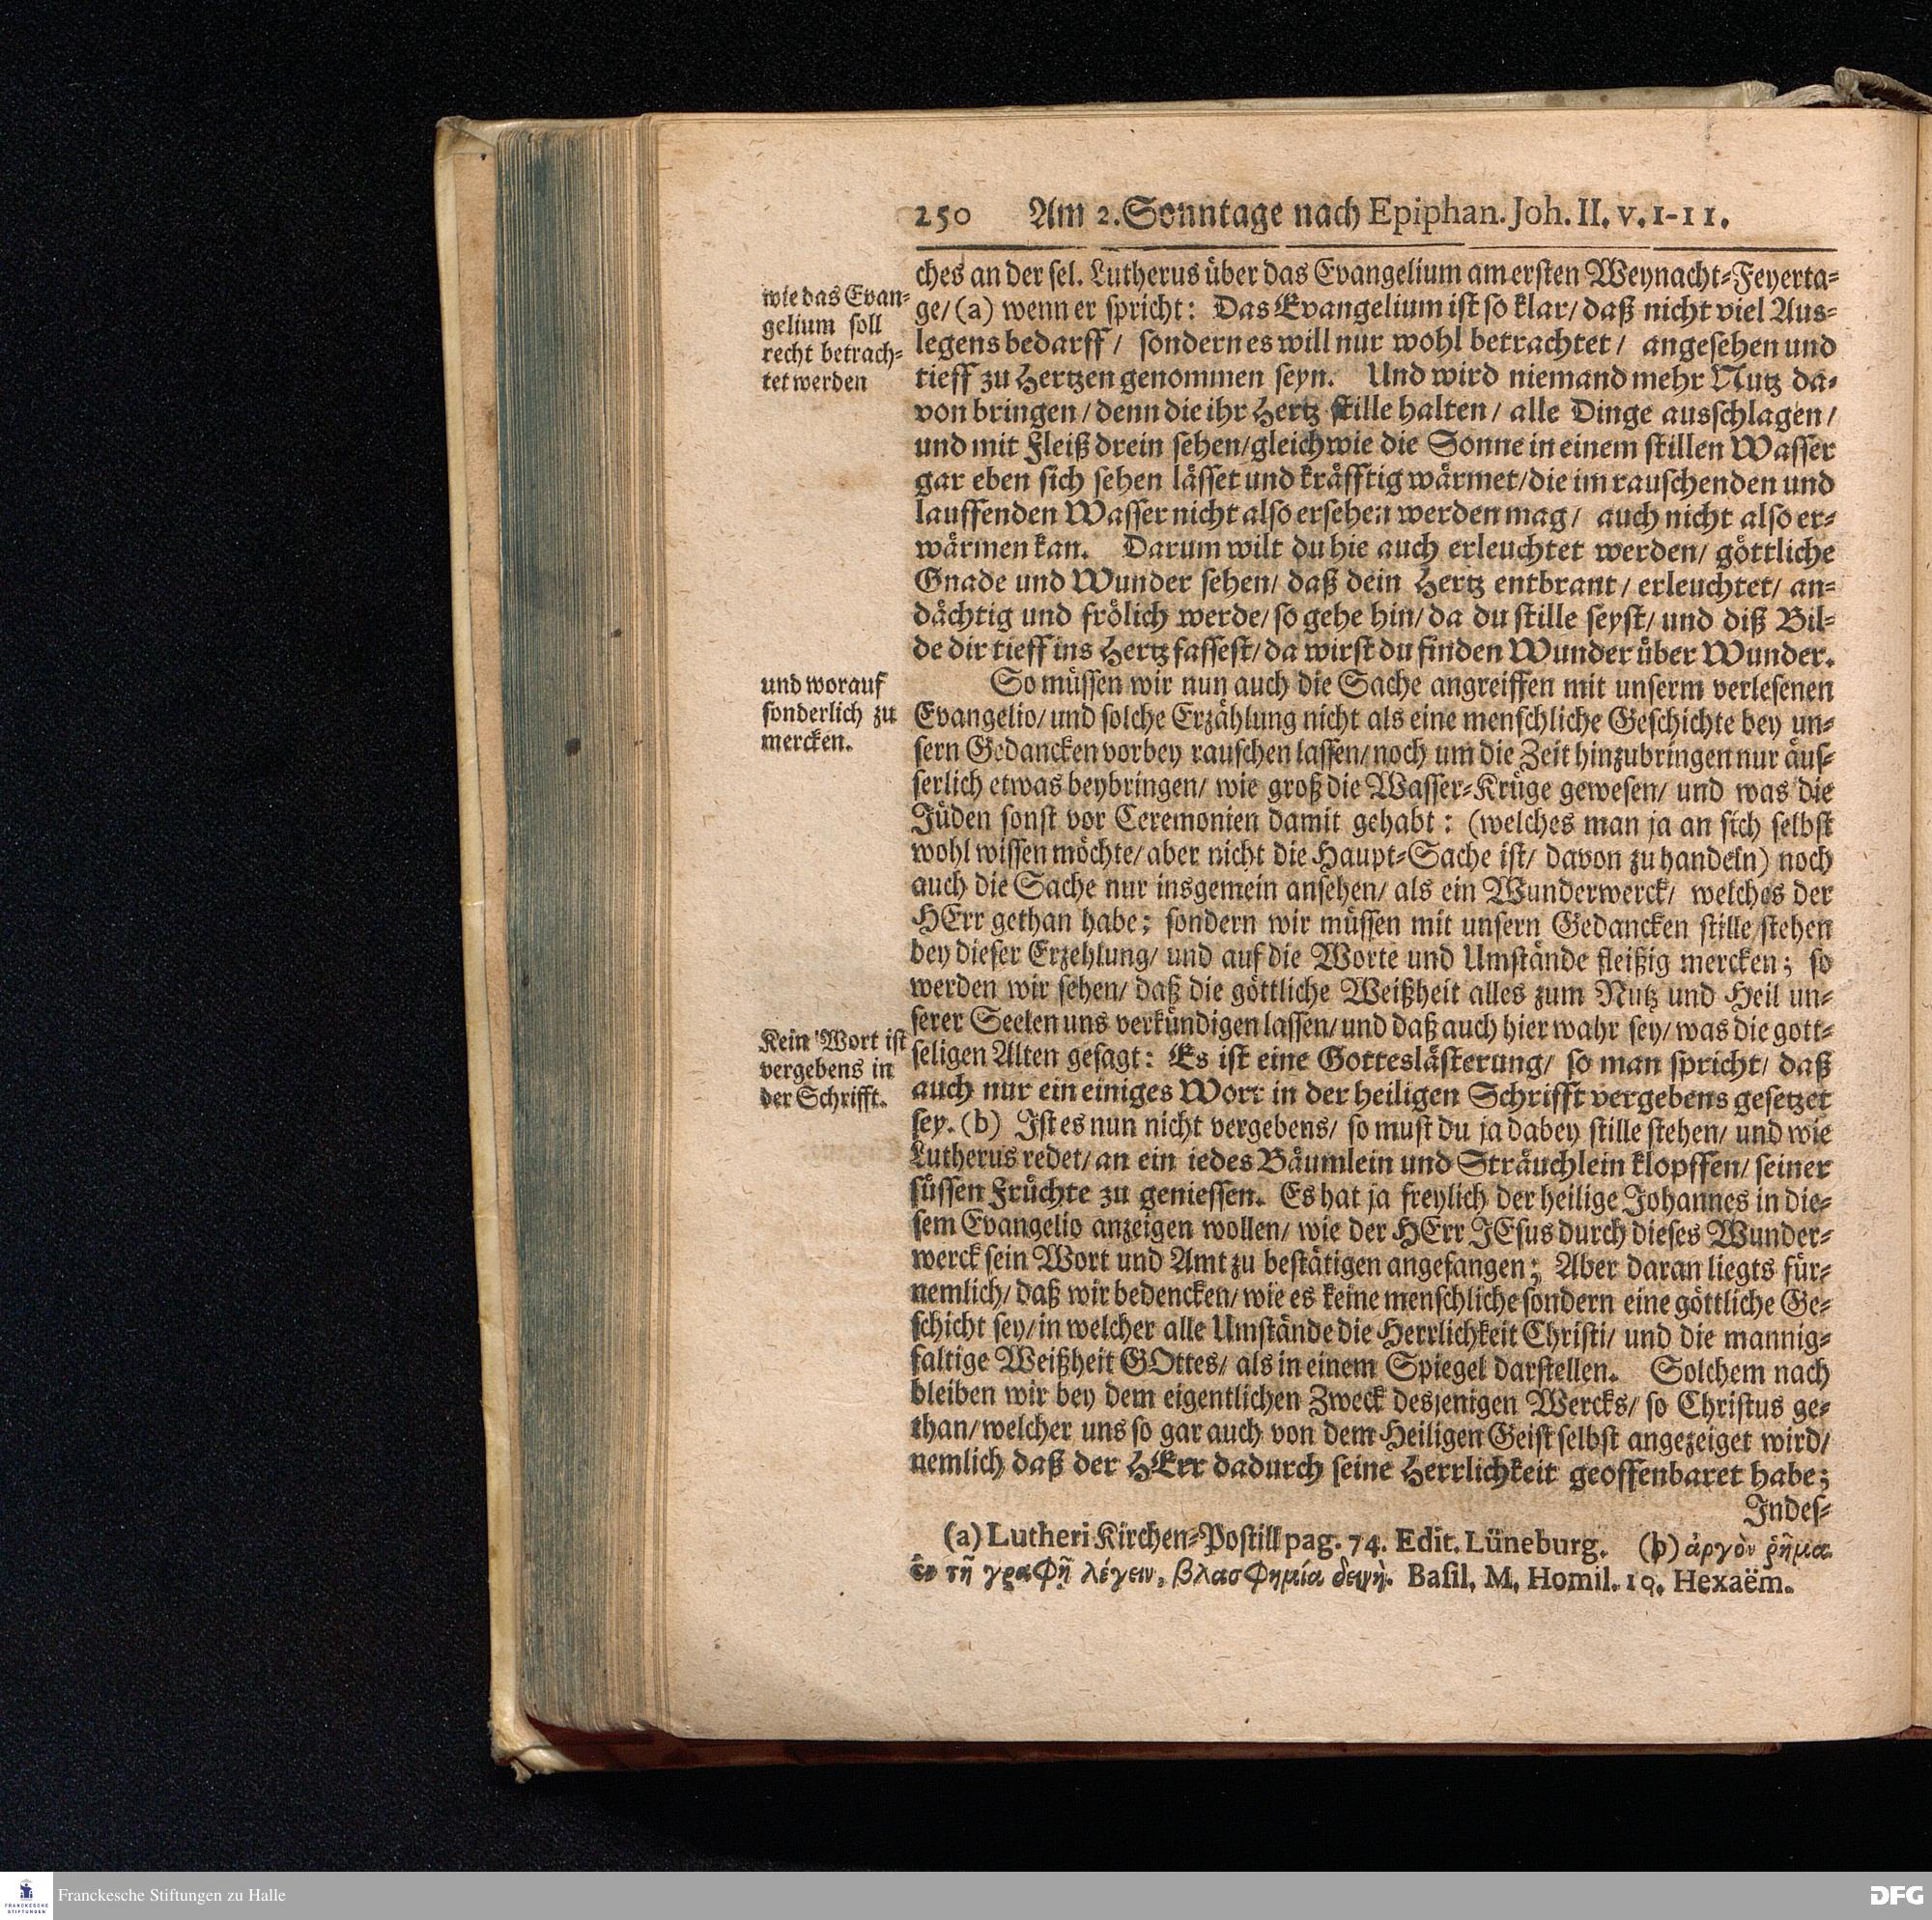 250 Am 2. Sonntage nach Epiphan. Joh. II. v. 1-11.
wie das Evan-
gelium soll
recht betrach-
tet werden
ches an der sel. Lutherus über das Evangelium am ersten Weynacht-Feyerta-
ge/ (a) wenn er spricht: Das Evangelium ist so klar/ daß nicht viel Aus-
legens bedarff/ sondern es will nur wohl betrachtet/ angesehen und
tieff zu Hertzen genommen seyn. Und wird niemand mehr Nutz da-
von bringen/ denn die ihr Hertz stille halten/ alle Dinge ausschlagen/
und mit Fleiß drein sehen/ gleichwie die Sonne in einem stillen Wasser
gar eben sich sehen lässet und kräfftig wärmet/ die im rauschenden und
lauffenden Wasser nicht also ersehen werden mag/ auch nicht also er-
wärmen kan. Darum wilt du hie auch erleuchtet werden/ göttliche
Gnade und Wunder sehen/ daß dein Hertz entbrant/ erleuchtet/ an-
dächtig und frölich werde/ so gehe hin/ da du stille seyst/ und diß Bil-
de dir tieff ins Hertz fassest/ da wirst du finden Wunder über Wunder.
und worauf
sonderlich zu
mercken.
So müssen wir nun auch die Sache angreiffen mit unserm verlesenen
Evangelio/ und solche Erzählung nicht als eine menschliche Geschichte bey un-
sern Gedancken vorbey rauschen lassen/ noch um die Zeit hinzubringen nur äus-
serlich etwas beybringen/ wie groß die Wasser-Krüge gewesen/ und was die
Jüden sonst vor Ceremonien damit gehabt: (welches man ja an sich selbst
wohl wissen möchte/ aber nicht die Haupt-Sache ist/ davon zu handeln) noch
auch die Sache nur insgemein ansehen/ als ein Wunderwerck/ welches der
HErr gethan habe; sondern wir müssen mit unsern Gedancken stille stehen
bey dieser Erzehlung/ und auf die Worte und Umstände fleißig mercken; so
werden wir sehen/ daß die göttliche Weißheit alles zum Nutz und Heil un-
serer Seelen uns verkündigen lassen/ und daß auch hier wahr sey/ was die gott-
Kein Wort ist
vergebens in
der Schrifft.
seligen Alten gesagt: Es ist eine Gotteslästerung/ so man spricht/ daß
auch nur ein einiges Wort in der heiligen Schrifft vergebens gesetzet
sey. (b) Ist es nun nicht vergebens/ so must du ja dabey stille stehen/ und wie
Lutherus redet/ an ein iedes Bäumlein und Sträuchlein klopffen/ seiner
süssen Früchte zu geniessen. Es hat ja freylich der heilige Johannes in die-
sem Evangelio anzeigen wollen/ wie der HErr JEsus durch dieses Wunder-
werck sein Wort und Amt zu bestätigen angefangen; Aber daran liegts für-
nemlich/ daß wir bedencken/ wie es keine menschliche sondern eine göttliche Ge-
schicht sey/ in welcher alle Umstände die Herrlichkeit Christi/ und die mannig-
faltige Weißheit GOttes/ als in einem Spiegel darstellen. Solchem nach
bleiben wir bey dem eigentlichen Zweck desjenigen Wercks/ so Christus ge-
than/ welcher uns so gar auch von dem Heiligen Geist selbst angezeiget wird/
nemlich daß der HErr dadurch seine Herrlichkeit geoffenbaret habe;
Indes-
(a) Lutheri Kirchen-Postill pag. 74. Edit. Lüneburg. (b) ἀργὸν ῥῆμα
ἐν τῇ γραφῇ λέγειν, βλασφημία δεινὴ. Basil. M. Homil. 10. Hexaëm.
FRANCKESCHE
STIFTUNGEN
Franckesche Stiftungen zu Halle
DFG